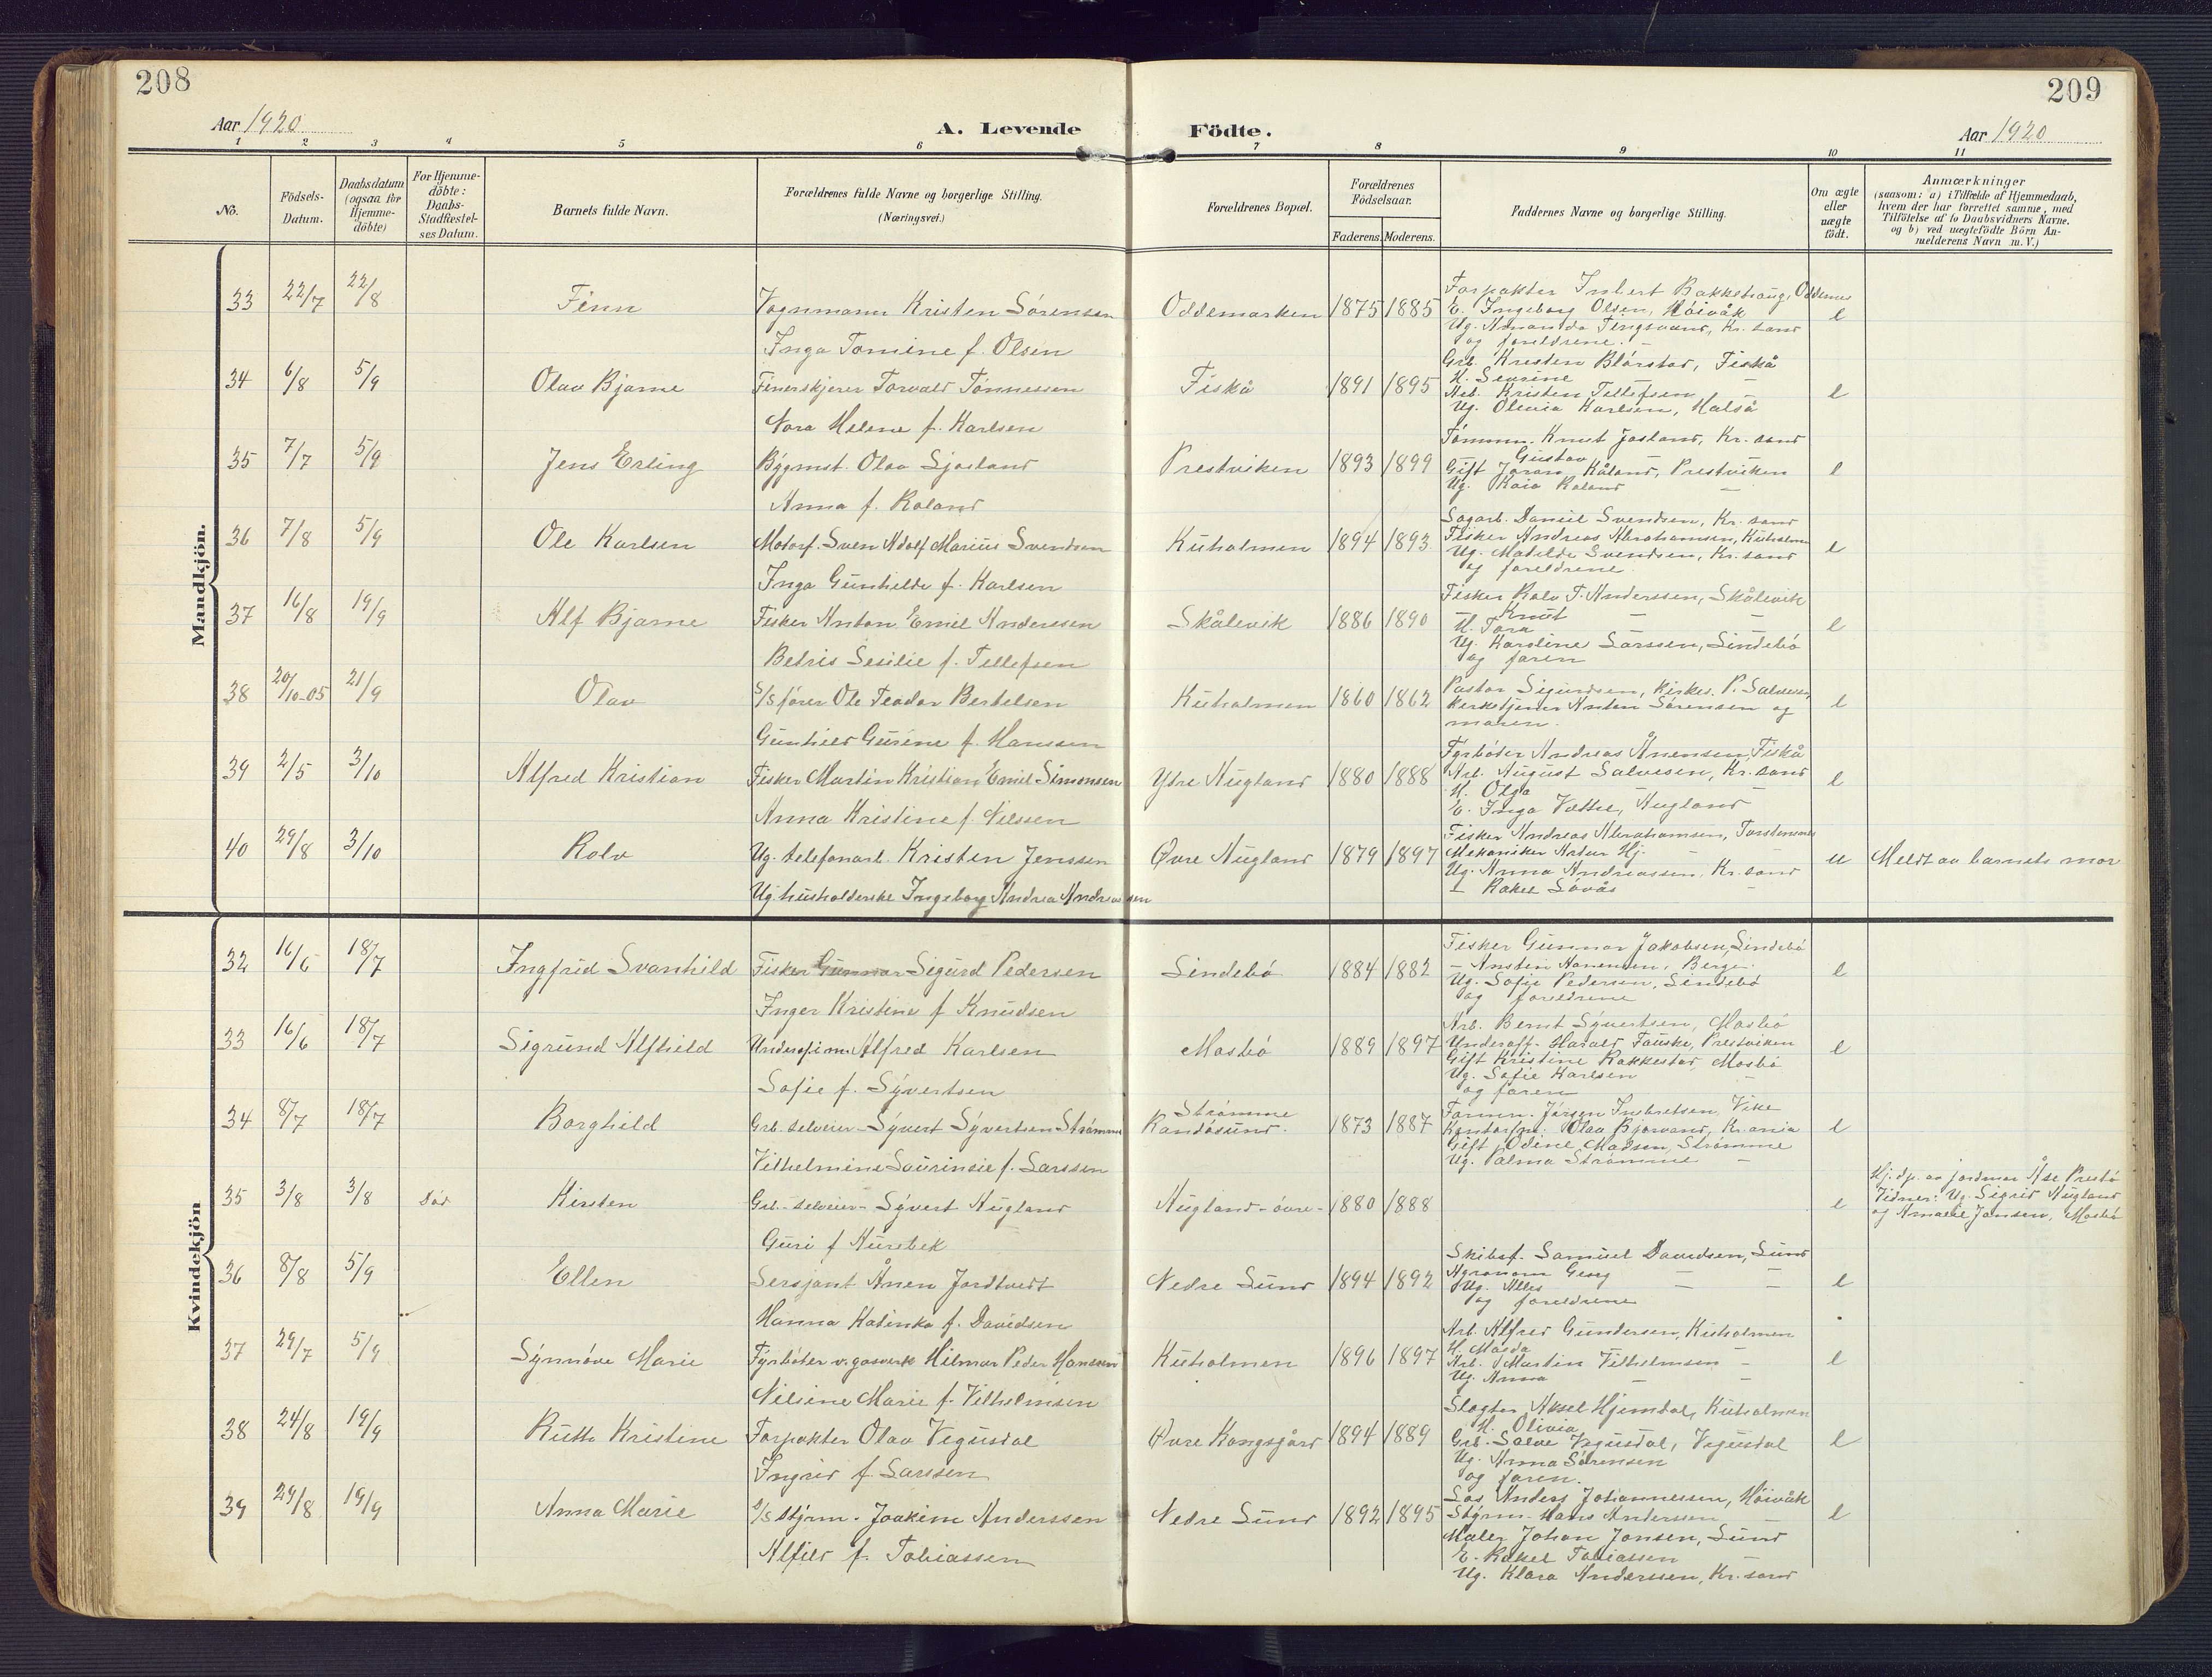 208
209
Aar 1920
A. Levende
Födte.
Aar 1920
1 2 3 4 5 6 7 8 9 10 11
No.
Födsels-
Datum.
Daabsdatum
(ogsaa for
Hjemme-
döbte)
For Hjemme-
döbte:
Daabs-
Stadfæstel-
ses Datum.
Barnets fulde Navn.
Forældrenes fulde Navne og borgerlige Stilling.
(Næringsvei.)
Forældrenes Bopæl.
Forældrenes
Födselsaar.
Faderens. Moderens.
Faddernes Navne og borgerlige Stilling.
Om ægte
eller
uægte
födt.
Anmærkninger
(saasom: a) i Tilfælde af Hjemmedaab,
hvem der har forrettet samme, med
Tilföielse af to Daabsvidners Navne.
og b) ved uægtefödte Börn An-
melderens Navn m. V.)
Mandkjön.
33 22/7 22/8 Finn Vognmann Kristen Sørensen Oddemarken 1875 1885 e
Inga Tomine f. Olsen
Forpakter Inbert Bakkehaug, Oddernes
E. Ingeborg Olsen, Høivåk
Ug. Amanda Tingsvand, Kr. sand
og foreldrene. –
34 6/8 5/9 Olav Bjarne Finerskjerer Torvald Tønnessen Fiskå 1891 1895 e
Nora Helene f. Karlsen
Grb. Kristen Blørstad, Fiskå
H. Sevrine –
Arb. Kristen Tellefsen –
Ug. Olivia Karlsen, Halså
35 7/7 5/9 Jens Erling Bygmst. Olav Sjøsland Prestviken 1893 1899 e
Anna f. Roland
Tømmn. Knut Josland, Kr. sand
Gustav –
Gift Joran Råland, Prestviken
Ug. Kaia Roland –
36 7/8 5/9 Ole Karlsen Motorf. Sven Adolf Marius Svendsen Kuholmen 1894 1893 e
Inga Gunhilde f. Karlsen
Sagarb. Daniel Svendsen, Kr. sand
Fisker Andreas Abrahamsen, Kuholmen
Ug. Matilde Svendsen, Kr. sand
og foreldrene
37 16/8 19/9 Alf Bjarne Fisker Anton Emil Anderssen Skålevik 1886 1890 e
Betris Sesilie f. Tellefsen
Fisker Rolv T. Anderssen, Skålevik
Knut – –
H. Tora
Ug. Karoline Larssen, Lindebø
og faren
38 20/10-05 21/9 Olav S/s fører Ole Teodor Bertelsen Kuholmen 1860 1862 e
Gunhild Gurine f. Hanssen
Pastor Sigurdsen, Kirkes. P. Salvesen,
Kirketjener Anton Sørensen og
moren.
39 2/5 3/10 Alfred Kristian Fisker Martin Kristian Emil Simonsen Ytre Augland 1880 1888 e
Anna Kristine f. Nilssen
Fyrbøter Andreas Ånensen, Fiskå
Arb. August Salvesen, Kr. sand
H. Olga – –
E. Inga Vatne, Augland
40 29/8 3/10 Rolv Ug. telefonarb. Kristen Jenssen Øvre Augland 1879 1897 u Meldt av barnets mor
Ug. husholderske Ingeborg Andrea Andreassen
Fisker Andreas Abrahamsen,
Mekaniker Artur Hj. –
Ug. Anna Andreassen, Kr. sand
– Rakel Løvås –
Kvindekjön
32 16/6 18/7 Ingfrid Svanhild Fisker Sigurd Pedersen Lindebø 1884 1882 e
Inger Kristine f. Knudsen
Fisker Gunnar Jakobsen, Lindebø
– Anstein Hanensen, Berge.
Ug. Sofie Pedersen, Lindebø
og foreldrene
33 16/6 18/7 Sigrund Alfhild Underof.m. Alfred Karlsen Mosbø 1889 1897 e
Sofie f. Syvertsen
Arb. Bernt Syvertsen, Mosbø
Underoff. Harald Fauske, Prestviken
Gift Kristine Rakkestad, Mosbø
Ug. Sofie Karlsen –
og faren
34 8/7 18/7 Borghild Grb. selveier – Syvert Syvertsen Strømme Strømme Randøsund. 1873 1887 e
Vilhelmine Lovrinsie f. Larssen
Formn. Jørgen Inbretsen, Vike
Kontorfm. Olav Bjorvand, Kr.ania
Gift Odine Madsen, Strømme
Ug. Palma Strømme –
35 3/8 3/8 Død Kirsten Grb. – selveier – Syvert Augland Augland – øvre – 1880 1888 e
Guri f Aurebek
Hj. dp. av jordmor Åse Prestø
Vidner: Ug. Sigrid Augland
og Amalie Jansen, Mosbø
36 8/8 5/9 Ellen Sersjant Ånen Jordtveit Nedre Sund 1894 1892 e
Hanna Katinka f. Davidsen
Skibsf. Samuel Davidsen, Sund
Agronom Georg – –
Ug. – –
og foreldrene
37 29/7 5/9 Synnøve Marie Fyrbøter v. gasverk Hilmar Peder Hansen Kuholmen 1896 1897 e
Nilsine Marie f. Vilhelmsen
Arb. Alfred Gundersen, Kuholmen
H. Magda
Arb. Martin Vilhelmsen –
Ug. Anna – –
38 24/8 19/9 Ruth Kristine Forpakter Olav Vegusdal Øvre Kongsgård 1894 1889 e
Ingrid f. Larssen
Slagter Aksel Hjemdal, Kuholmen
H. Olivia –
Grb. Salve Vegusdal, Vegusdal
Ug. Anna Sørensen
og faren.
39 29/8 19/9 Anna Marie S/s styrm. Joakim Anderssen Nedre Sund 1892 1895 e
Alfild f. Tobiassen
Los Anders Johannessen, Høivåk
Styrm. Hans Anderssen –
Maler Johan Jansen, Sund
E. Rakel Tobiassen –
Ug. Klara Anderssen, Kr. sand